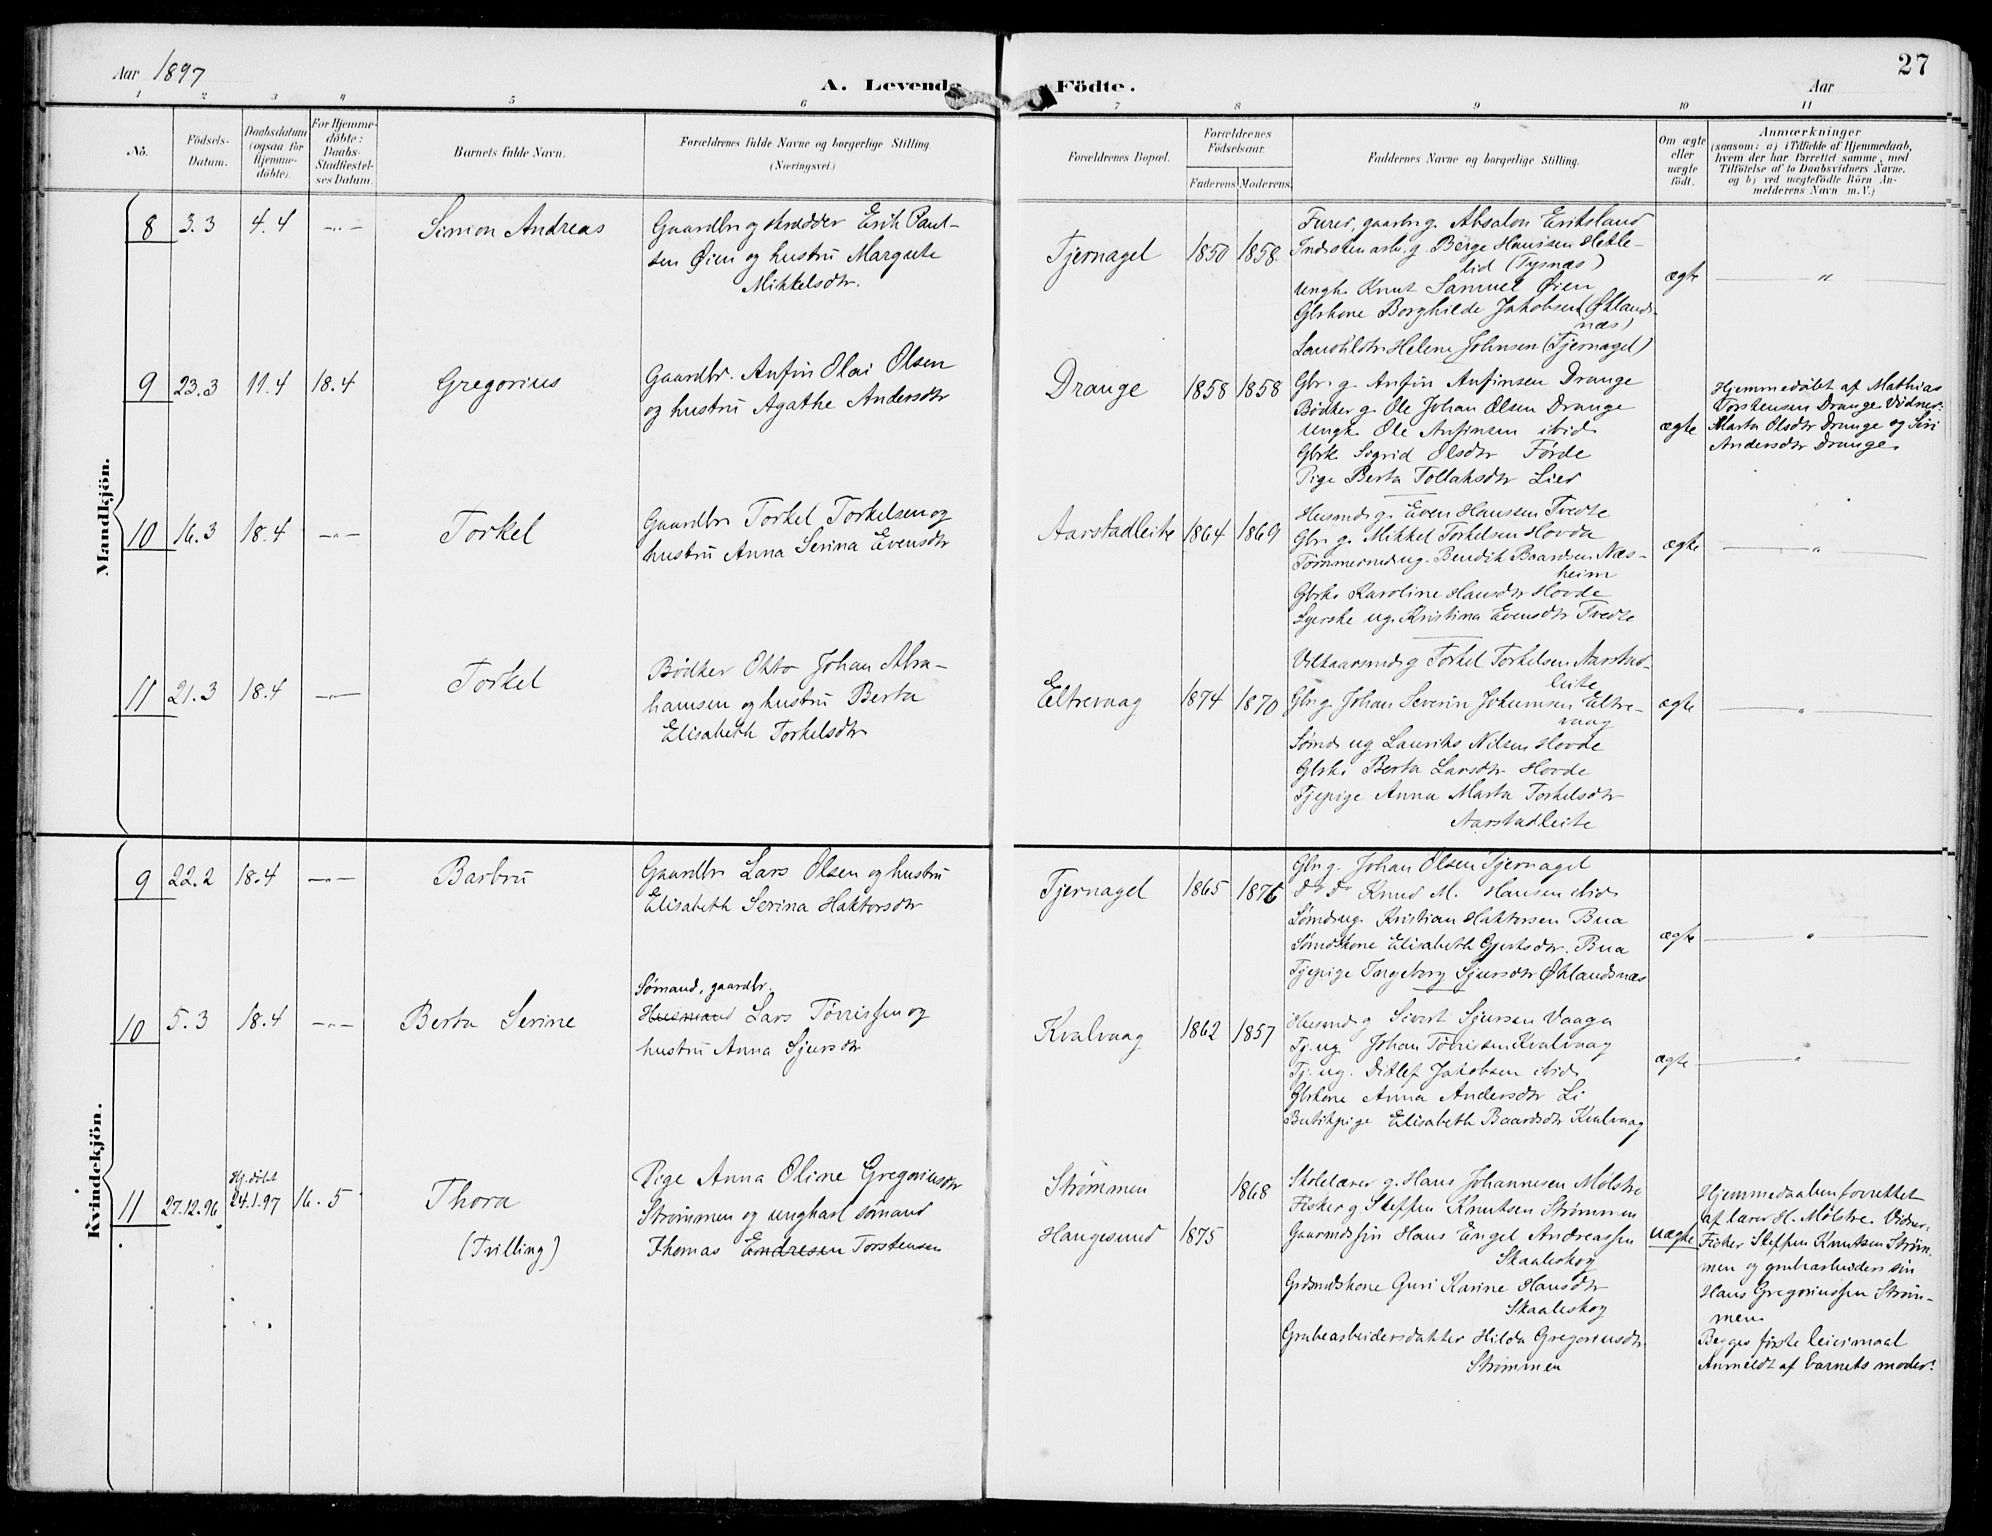 Aar 1897
A. Levende Födte.
Aar
27
1 2 3 4 5 6 7 8 9 10 11
Nö.
Födsels-
Datum.
Daabsdatum
(ogsaa for
Hjemme-
döbte).
For Hjemme-
döbte:
Daabs-
Stadfæstel-
ses Datum.
Barnets fulde Navn.
Forældrenes fulde Navne og borgerlige Stilling
(Næringsvei.)
Forældrenes Bopæl.
Forældrenes
Födselsaar.
Faderens. Moderens.
Faddernes Navne og borgerlige Stilling.
Om ægte
eller
uægte
födt.
Anmærkninger
(saasom: a) i Tilfælde af Hjemmedaab,
hvem der har forrettet samme, med
Tilföielse af to Daabsvidners Navne.
og b) ved uægtefödte Börn An-
melderens Navn m. V.)
Mandkjön.
8 3.3 4.4 -"- Simon Andreas
Gaardbr og skrædder Erik Paul-
sen Øien og hustru Margrete
Mikkelsdtr.
Tjernagel 1850 1858
Furer, gaardbr g. Absalon Eriksland
Indstenarb. g. Børge Hansen Hetle-
lid (Tysnæs)
Ungk. Knut Samuel Øien
Gbrkone Borghilde Jakobsen (Øklands-
næs)
Helene Johnsen (Tjernagel)
ægte "
9 23.3 11.4 18.4 Gregorius
Gaardbr. Anfin Olai Olsen
og hustru Agathe Andersdtr
Drange 1858 1858
Gbr. g. Anfin Anfinsen Drange
Bødker g. Ole Johan Olsen Drange
Ungk. Ole Anfinsen ibid.
Gbrk. Sigrid Olsdtr Førde
Pige Berta Tollaksdtr Lier
ægte
Hjemmedøbt af Mathias
Torstensen Drange Vidner:
Marta Olsdtr Drange og Siri
Andersdtr Drange.
10 16.3 18.4 -"- Torkel
Gaardbr Torkel Torkelsen og
hustru Anna Serina Evensdtr
Aarstadleite 1864 1869
Husmd g. Even Hansen Tvedte
Gbr. g. Mikkel Torkelsen Hovda
Tømmermd ug. Bendik Baardsen Næs-
heim
Gbrk. Karoline Hansdtr Hovde
Syerske ug. Kristina Evensdtr Tvedte
ægte "
11 21.3 18.4 -"- Torkel
Bødker Otto Johan Abra-
hamsen og hustru Berta
Elisabeth Torkelsdtr
Eltrevaag 1874 1870
Vilkaarsmd g Torkel Torkelsen Aarstad-
leite
Gbr g. Johan Severin Johannesen Eltre-
vaag
Sømd ug Laurits Nilsen Hovde
Gbrk. Berta Larsdtr Hovde
Tjepige Anna Marta Torkelsdtr
Aarstadleite
ægte "
Kvindekjön.
9 22.2 18.4 -"- Barbru
Gaardbr Lars Olsen og hustru
Elisabeth Serina Haktorsdtr
Tjernagel 1865 1876
Gbr g. Johan Olsen Tjernagel
do do Knud M. Hansen ibid.
Sømd ug. Kristian Haktorsen Bua
Sømdskone Elisabeth Gjertsdtr. Bua
Tjepige Ingeborg Sjursdtr Øklandsnæs
ægte "
10 5.3 18.4 -"- Berta Serine
Sømand, gaardbr.
Husmand Lars Tørrissen og
hustru Anna Sjursdtr
Kvalvaag 1862 1857
Husmd g Sivert Sjursen Vaage
Tj. ug. Johan Tørrissen Kvalvaag
Tj. ug. Ditlef Jakobsen ibid.
Gbrkone Anna Andersdtr Li
Butikpige Elisabeth Baardsdtr Kvalvaag
ægte "
11 27.12.96 Hj.døbt
24.1.97 16.5 Thora
(Tvilling)
Pige Anna Oline Gregoriusdtr
Strømmen og ungkarl sømand
Thomas Endresen Torstensen
Strømmen 1868
Haugesund 1875
Skolelærer g. Hans Johannesen Mølstre
Fisker g Steffen Knutsen Strømmen
Gaarmdssøn Hans Engel Andreassen
Skaaleskog
Grdmdskone Guri Karine Hansdtr
Skaaleskog
Grubearbeidersdatter Hilda Gregoriusdtr
Strømmen
uægte
Hjemmedaaben forrettet
af lærer H. Mølstre. Vidner:
Fisker Steffen Knutsen Strøm-
men og grubearbeiders søn
Hans Gregoriussen Strøm-
men.
Begges første leiermaal
Anmeldt af barnets moder.